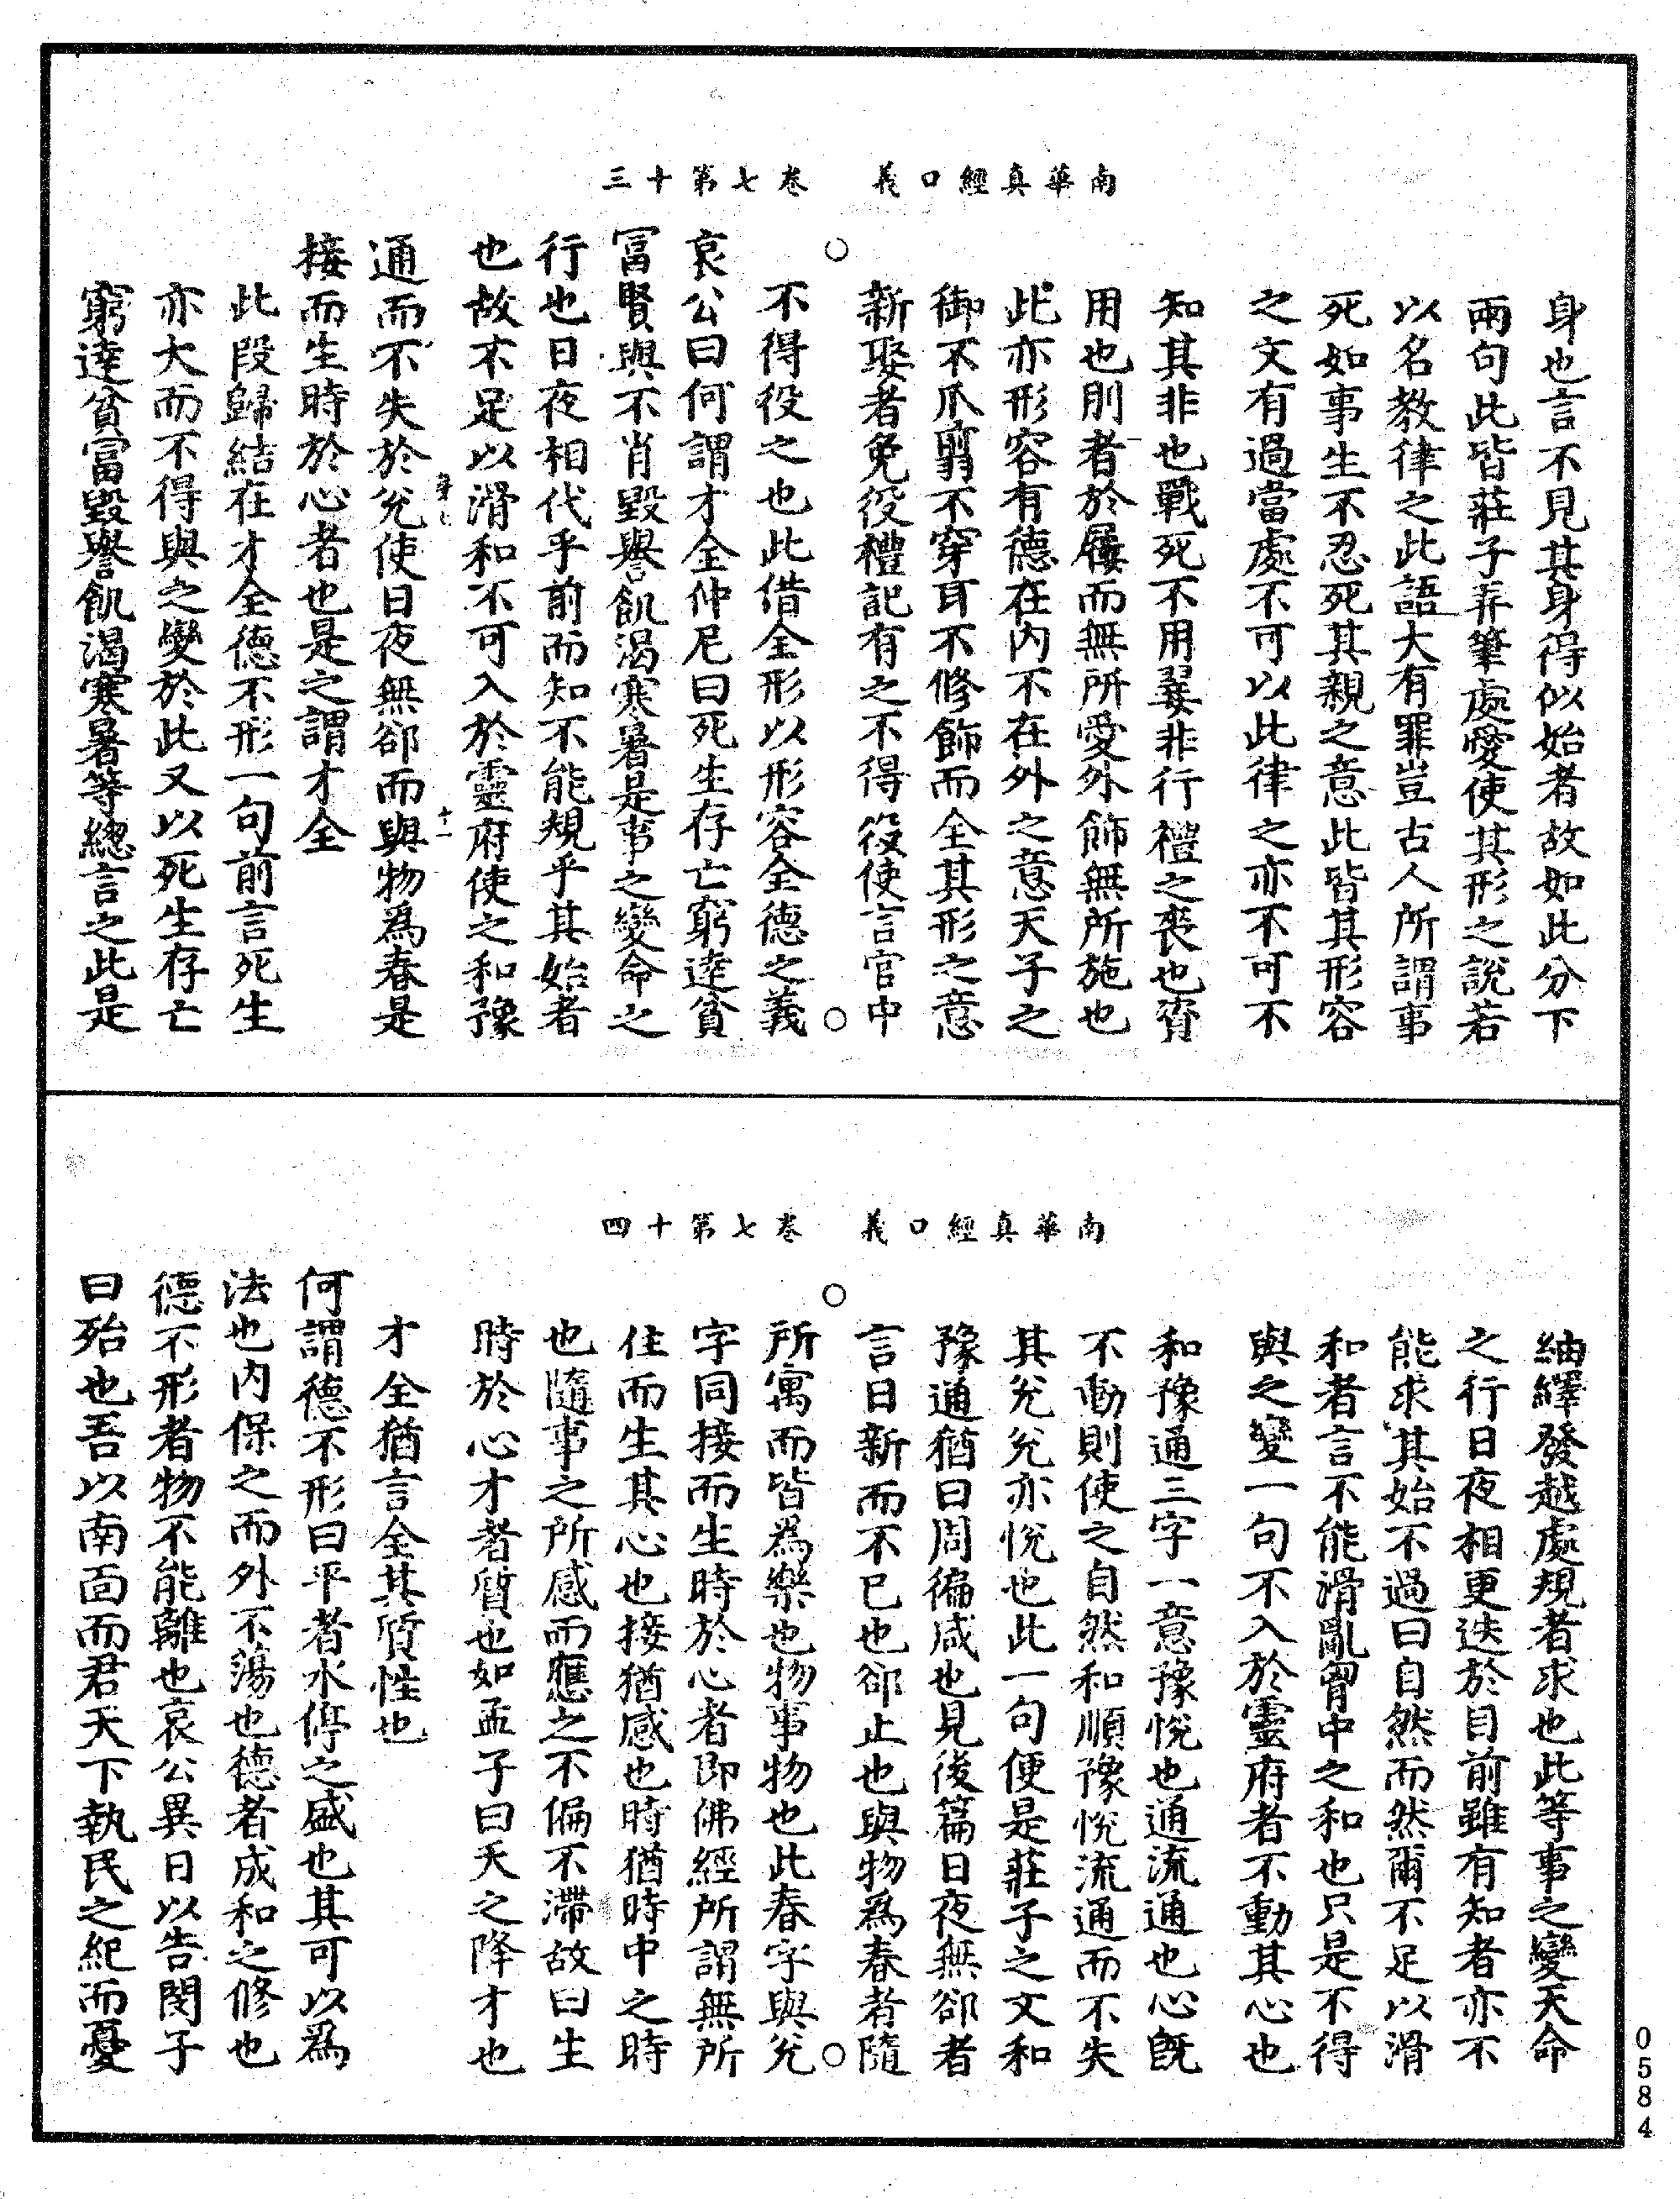 南華真經口義　卷七第十三
身也言不見其身得似始者故如此分下
兩句此皆莊子弄筆處愛使其形之說若
以名教律之此語大有罪豈古人所謂事
死如事生不忍死其親之意此皆其形容
之文有過當處不可以此律之亦不可不
知其非也戰死不用翣非行禮之喪也資
用也刖者於屨而無所愛外飾無所施也
此亦形容有德在內不在外之意天子之
御不爪翦不穿耳不修飾而全其形之意
新娶者免役禮記有之不得役使言官中
不得役之也此借全形以形容全德之義
哀公曰何謂才全仲尼曰死生存亡窮達貧
富賢與不肖毀譽飢渴寒暑是事之變命之
行也日夜相代乎前而知不能規乎其始者
也故不足以滑和不可入於靈府使之和豫
通而不失於兊使日夜無郤而與物爲春是
十一
接而生時於心者也是之謂才全
此段歸結在才全德不形一句前言死生
亦大而不得與之變於此又以死生存亡
窮達貧富毀譽飢渴寒暑等緫言之此是
南華真經口義　卷七第十四
紬繹發越處規者求也此等事之變天命
之行日夜相更迭於目前雖有知者亦不
能求其始不過曰自然而然爾不足以滑
和者言不能滑亂胷中之和也只是不得
與之變一句不入於靈府者不動其心也
和豫通三字一意豫悅也通流通也心旣
不動則使之自然和順豫悅流通而不失
其兊兊亦悅也此一句便是莊子之文和
豫通猶曰周徧咸也見後篇日夜無郤者
言日新而不已也郤止也與物爲春者隨
所寓而皆爲樂也物事物也此春字與兊
字同接而生時於心者即佛經所謂無所
住而生其心也接猶感也時猶時中之時
也隨事之所感而應之不偏不滯故曰生
時於心才者質也如孟子曰天之降才也
才全猶言全其質性也
何謂德不形曰平者水停之盛也其可以爲
法也內保之而外不蕩也德者成和之修也
德不形者物不能離也哀公異日以告閔子
曰殆也吾以南面而君天下執民之紀而憂
0584